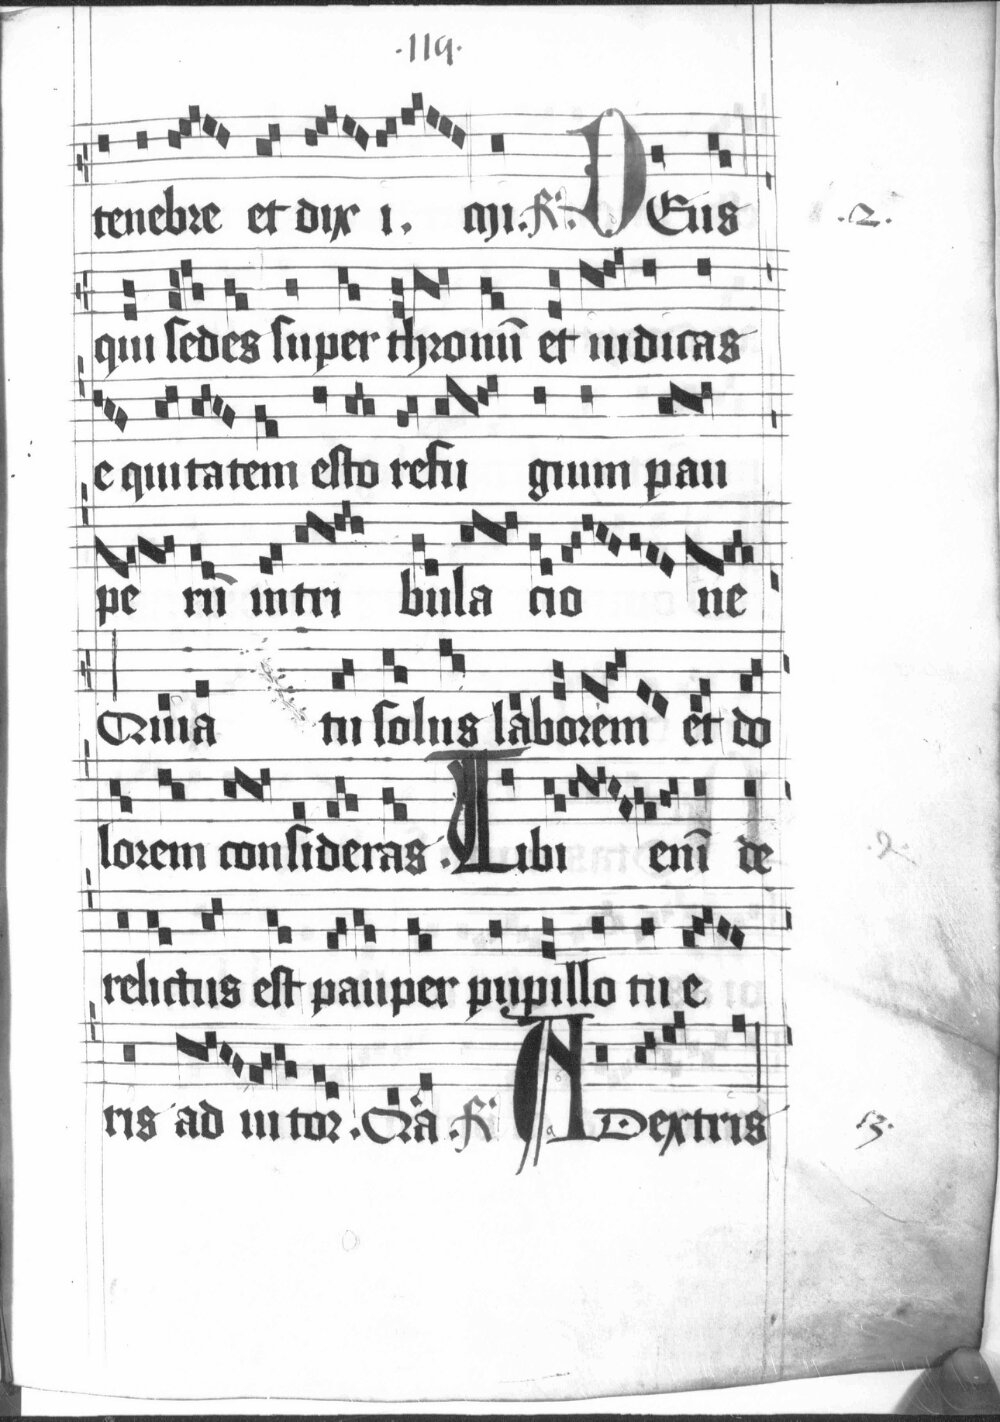 .119.
tenebre et dix i. mi. R. DEus .2.
qui sedes super thronū et iudicas
e quitatem esto refu gium pau
pe rū in tri bula cio ne
Quia tu solus laborem et do
lorem consideras. Tibi enī de
relictus est pauper pupillo tu e
ris ad iu tor. Qrā. R. A Dextris 13.